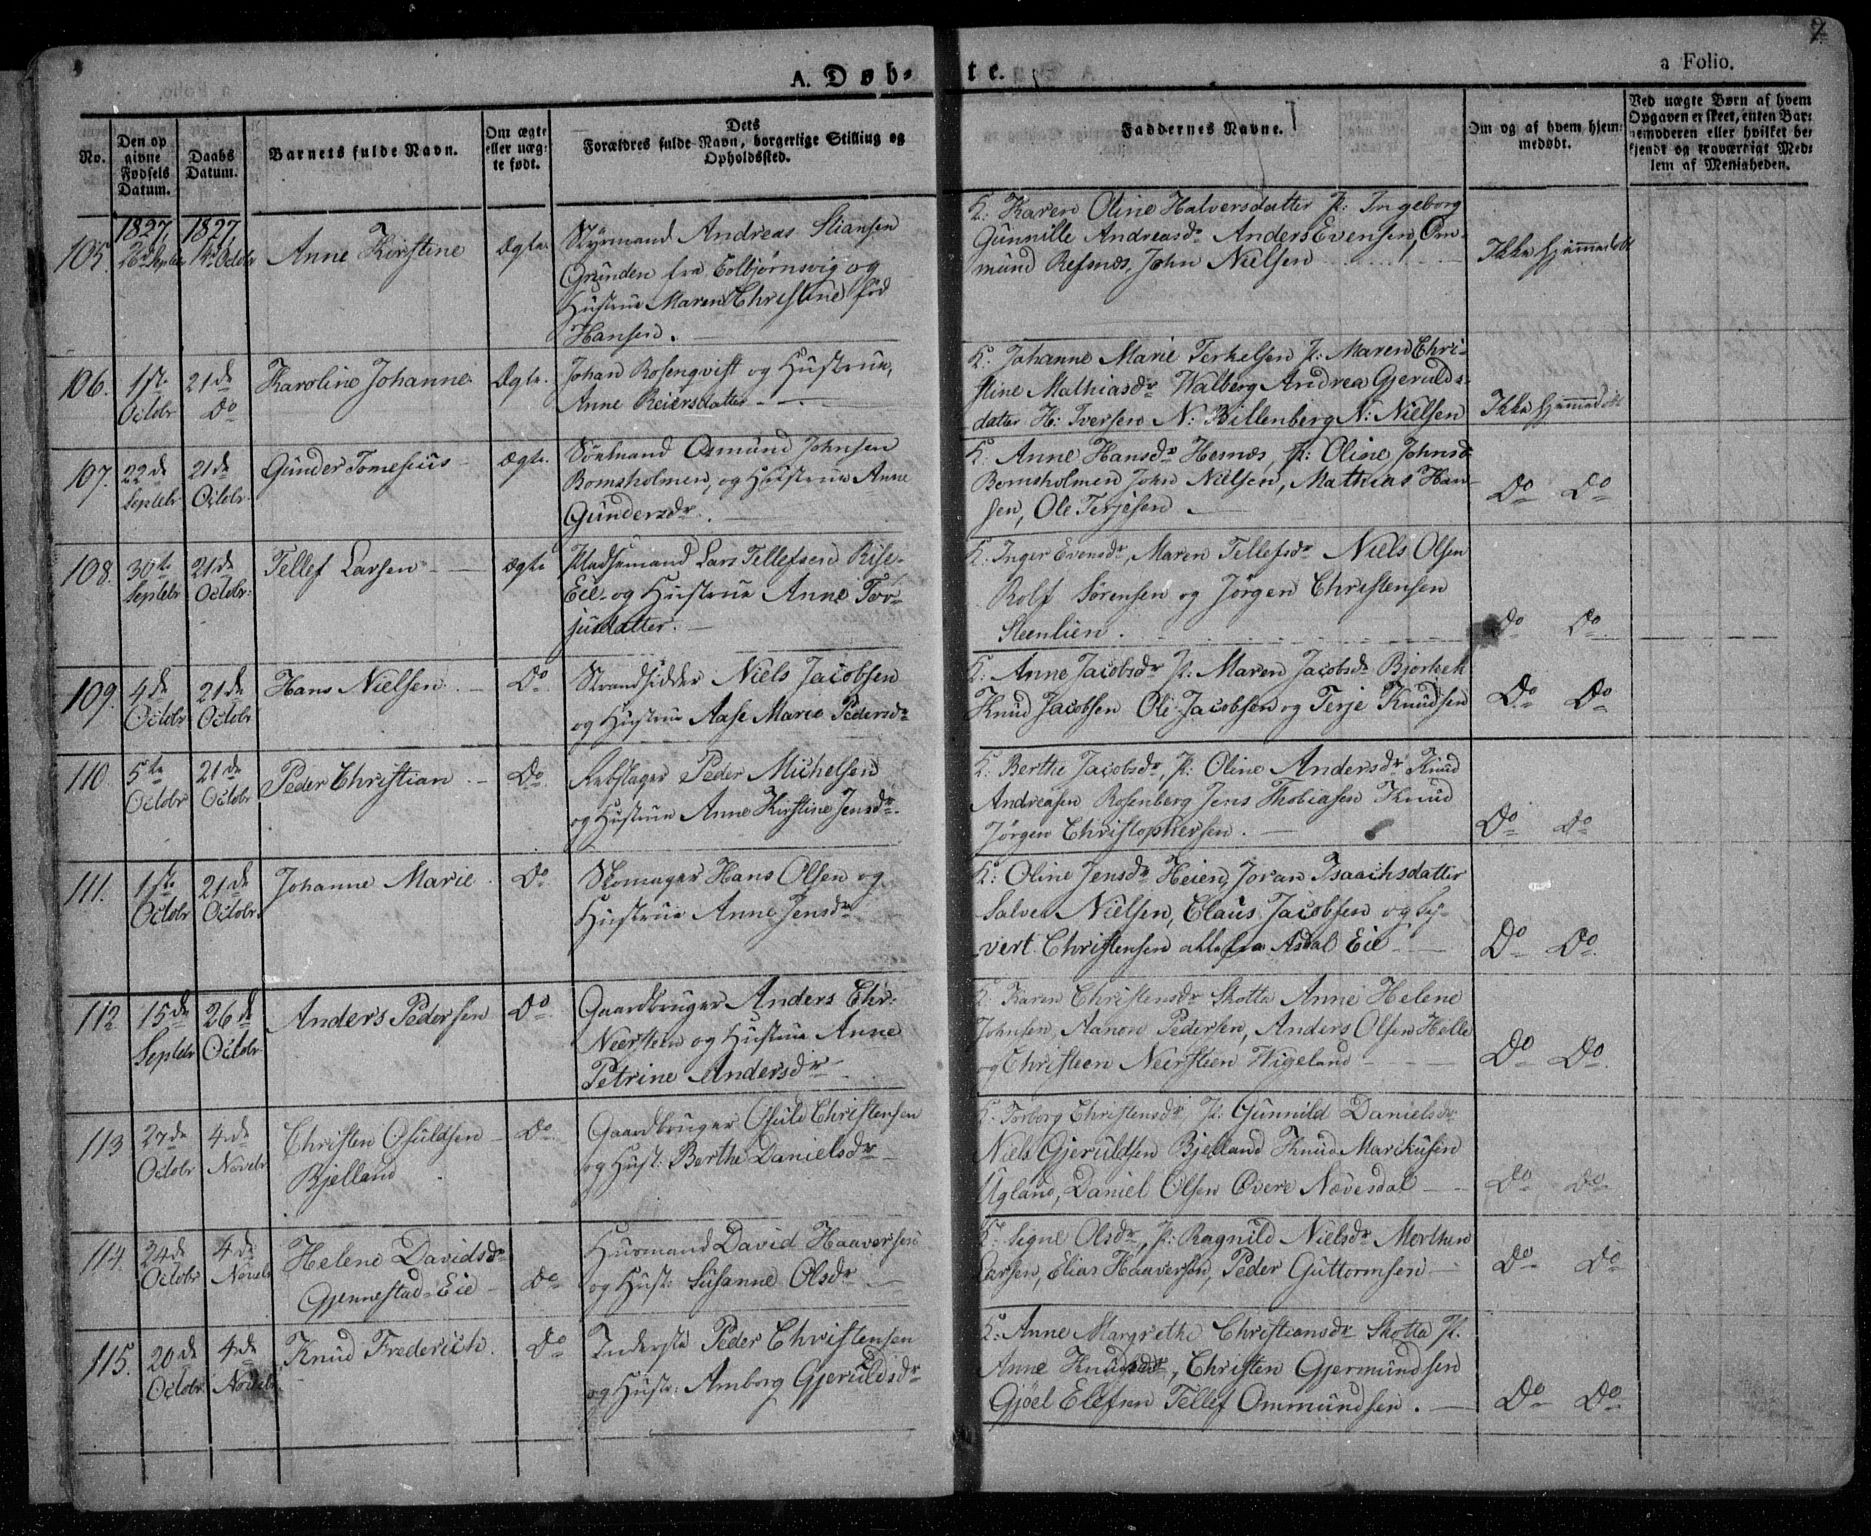 A. Døb-te.
7
a Folio.
No.
Den op
givne
Fødsels
Datum.
Daabs
Datum.
Barnets fulde Navn.
Om ægte
eller uæg-
te født.
Dets
Forældres fulde Navn, borgerlige Stilling og
Opholdssted.
Faddernes Navne.
Om og af hvem hjem-
medøbt.
Ved uægte Børn af hvem
Opgaven er skeet, enten Bar-
nemoderen eller hvilket be-
kjendt og troværdigt Med-
lem af Menigheden.
105.
1827
26de Septbr
1827
14de Octobr
Anne Kirstine
Ægte.
Styrmand Andreas Stiansen
Grunden fra Colbjørnsvig og
Hustrue Maren Christine fød
Hansen.
K: Karen Oline Halversdatter P: Ingeborg
Gunnille Andreasdr Anders Evensen, Om-
mund Refsnes, John Nielsen
Ikke hjemmedøbt
106.
1ste
Octobr
21de
Do
Karoline Johanne
Ægte.
Johan Rosenqvist og Hustrue,
Anne Reiersdatter
K: Johanne Marie Terkelsen P: Maren Chri-
stine Mathiasdr Walberg Andrea Gjerulds-
datter H: Iversen N: Billenberg N: Nielsen
Ikke hjemmedøbt
107.
22de
Septebr
21de
Octobr
Gunder Tomesius
Ægte.
Søemand Osmund Johnsen
Bomsholmen, og Hustrue Anne
Gundersdr.
K: Anne Hansdr Hesnes, P: Oline Johnsd
Bomsholmen John Nielsen, Mathias Han-
sen, Ole Terjesen
Do Do
108.
30te
Septebr
21de
Octobr
Tellef Larsen
ægte
Pladsemand Lars Tellefsen Rise-
Eie og Hustrue Anne Tor-
jusdatter.
K: Inger Evensdr, Maren Tellefsdr Niels Olsen
Rolf Sørensen og Jørgen Christensen
Steenlien.
Do Do
109.
4de
Octobr
21de
Octobr
Hans Nielsen
Do
Strandsidder Niels Jacobsen
og Hustrue Aase Marie Pedersdr
K: Anne Jacobsdr P: Maren Jacobsdr Bjorkek
Knud Jacobsen Ole Jacobsen og Terje Knudsen
Do Do
110
5te
Octobr
21de
Octobr
Peder Christian
Do
Rebslager Peder Michelsen
og Hustrue Anne Kirstine Jensdr.
K: Berthe Jacobsdr, P: Oline Andersdr Knud
Andreasen Rosenberg Jens Thobiasen Knud
Jørgen Christophersen.
Do Do
111.
1ste
Octobr
21de
Octobr
Johanne Marie
Do
Skomager Hans Olsen og
Hustrue Anne Jensdr
K: Oline Jensdr Heien, Joran Isaachsdatter
Salve Nielsen, Claus Jacobsen og Sy-
vert Christensen alle fra Asdal Eie
Do Do
112
15de
Septebr
26de
Octobr
Anders Pedersen
Do
Gaardbruger Anders Chr:
Neersten og Hustrue Anne
Petrine Andersdr
K: Karen Christensdr Skotta Anne Helene
Johnsen, Aanon Pedersen, Anders Olsen Helle
og Christeen Neirsteen Wigeland
Do Do
113
27de
Octobr
4de
Novebr
Christen Osuldsen
Bjelland
Do
Gaardbruger Osuld Christensen
og Hust: Berthe Danielsdr
K: Torborg Christensdr, P: Gunnild Danielsdr
Niels Gjeruldsen Bjelland Knud Markusen
Ugland, Daniel Olsen Øvere Nævesdal
Do Do
114.
24de
Octobr
4de
Novebr
Helene Davidsdr
Gjennestad-Eie
Do
Husmand David Haaversen
og Hust: Susanne Olsdr
K: Signe Olsdr, P: Ragnild Nielsdr Morthen
Larsen, Elias Haaversen, Peder Guttormsen
Do Do
115.
20de
Octobr
4de
Novebr
Knud Frederich.
Do
Inderste Peder Christensen
og Hust: Amborg Gjeruldsdr
K: Anne Margrethe Christiansdr Skotta P.
Anne Knudsdr, Christen Gjermundsen
Gjøel Elefsen Tellef Ommundsen.
Do Do